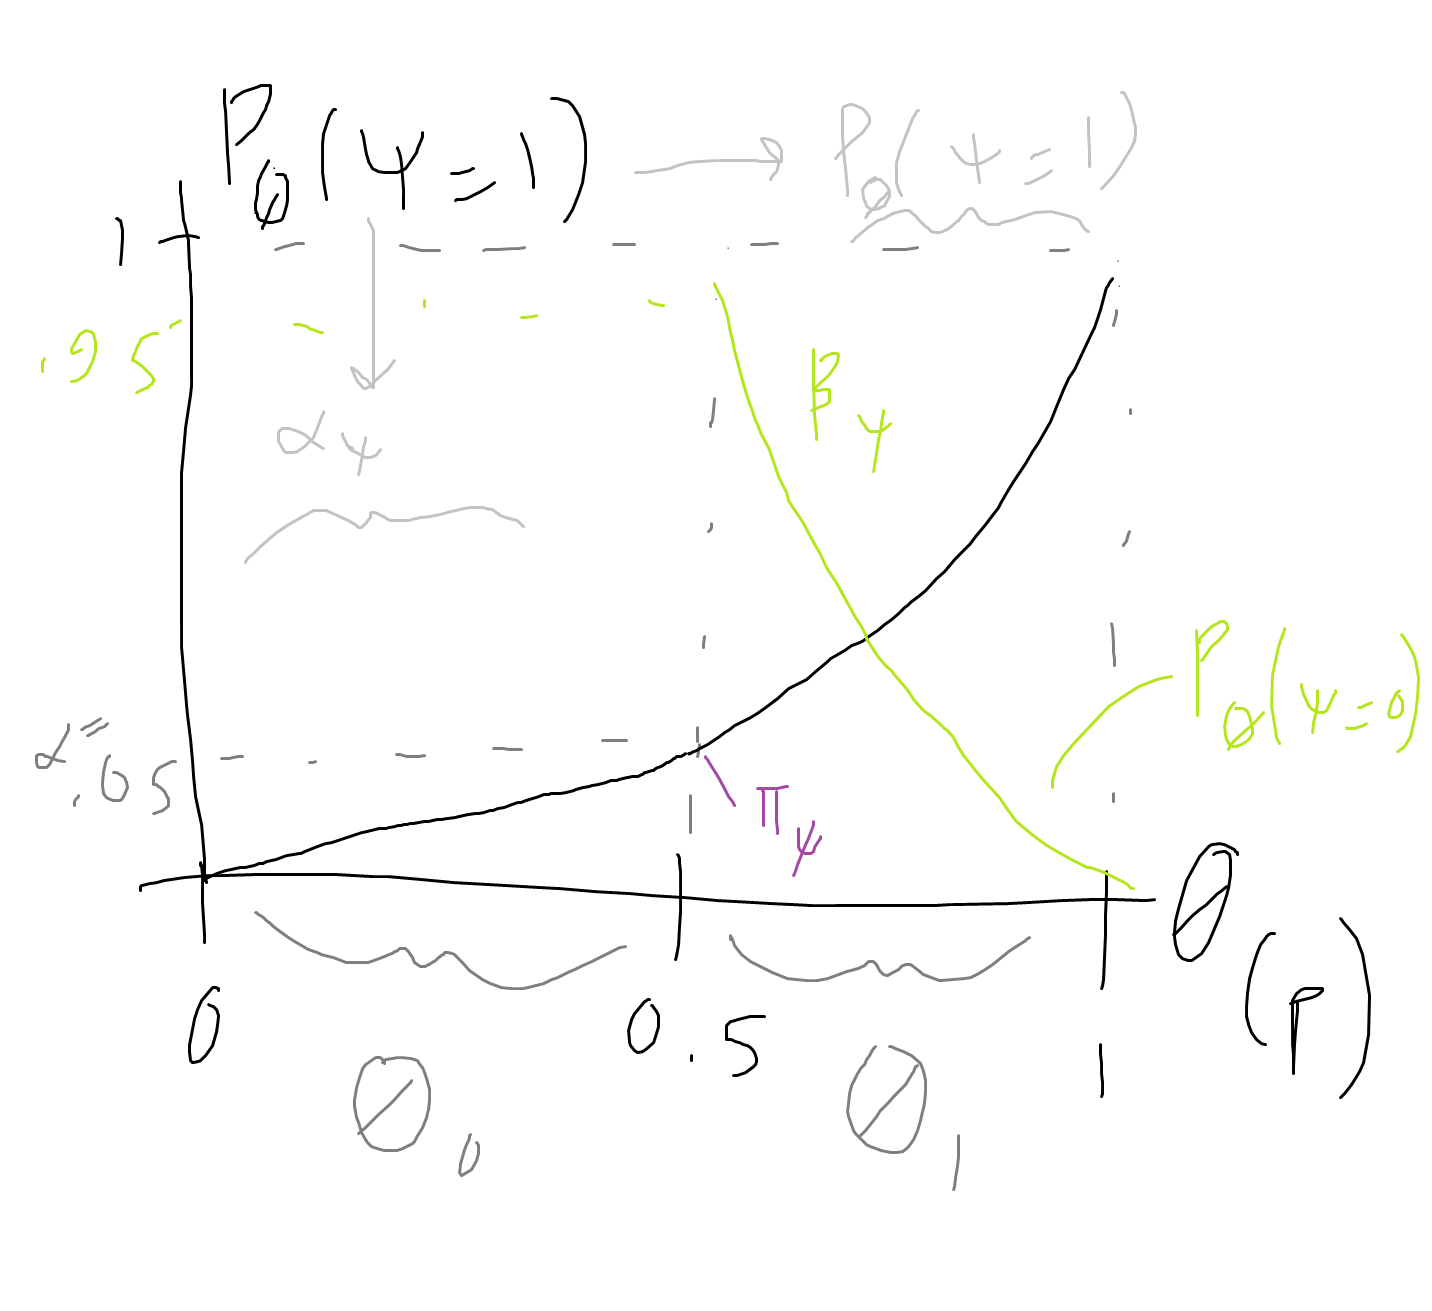 P_θ(ψ=1) → P_θ(ψ=1)
1
.95
β_ψ
α_ψ
P_θ(ψ=0)
α=
.05
π_ψ
θ
(p)
0 0.5 1
Θ_0 Θ_1